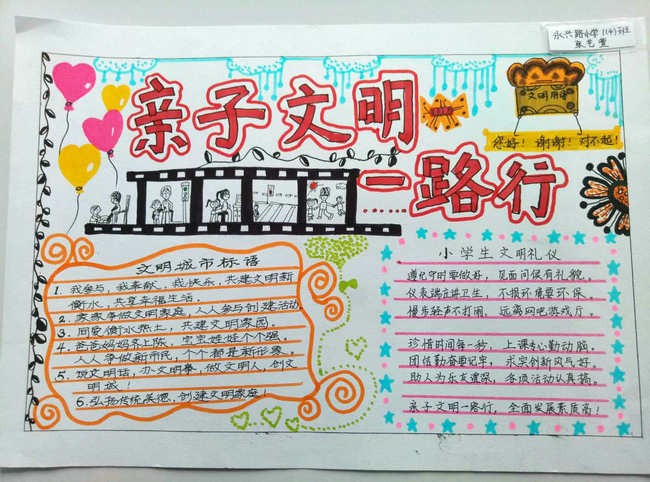 永兴路小学1(4)班
亲子文明
一路行
文明用语
您好！谢谢！对不起！
文明城市标语
1、我参与，我奉献，我快乐，共建文明新
衡水，共享幸福生活。
2、家家争做文明家庭，人人参与创建活动
3、同爱衡水热土，共建文明家园。
4、爸爸妈妈齐上阵，宝宝娃娃个个强。
人人争做新市民，个个都是新形象。
5、说文明话，办文明事，做文明人，创文
明城！
6、弘扬传统美德，创建文明家庭！
小学生文明礼仪
遵纪守时要做好，见面问候有礼貌。
仪表端庄讲卫生，不损环境要环保。
慢步轻声不打闹，远离网吧游戏厅。
珍惜时间每一秒，上课专心勤动脑。
团结勤奋要记牢，求实创新风气好。
助人为乐友谊深，各项活动认真搞。
亲子文明一路行，全面发展素质高！